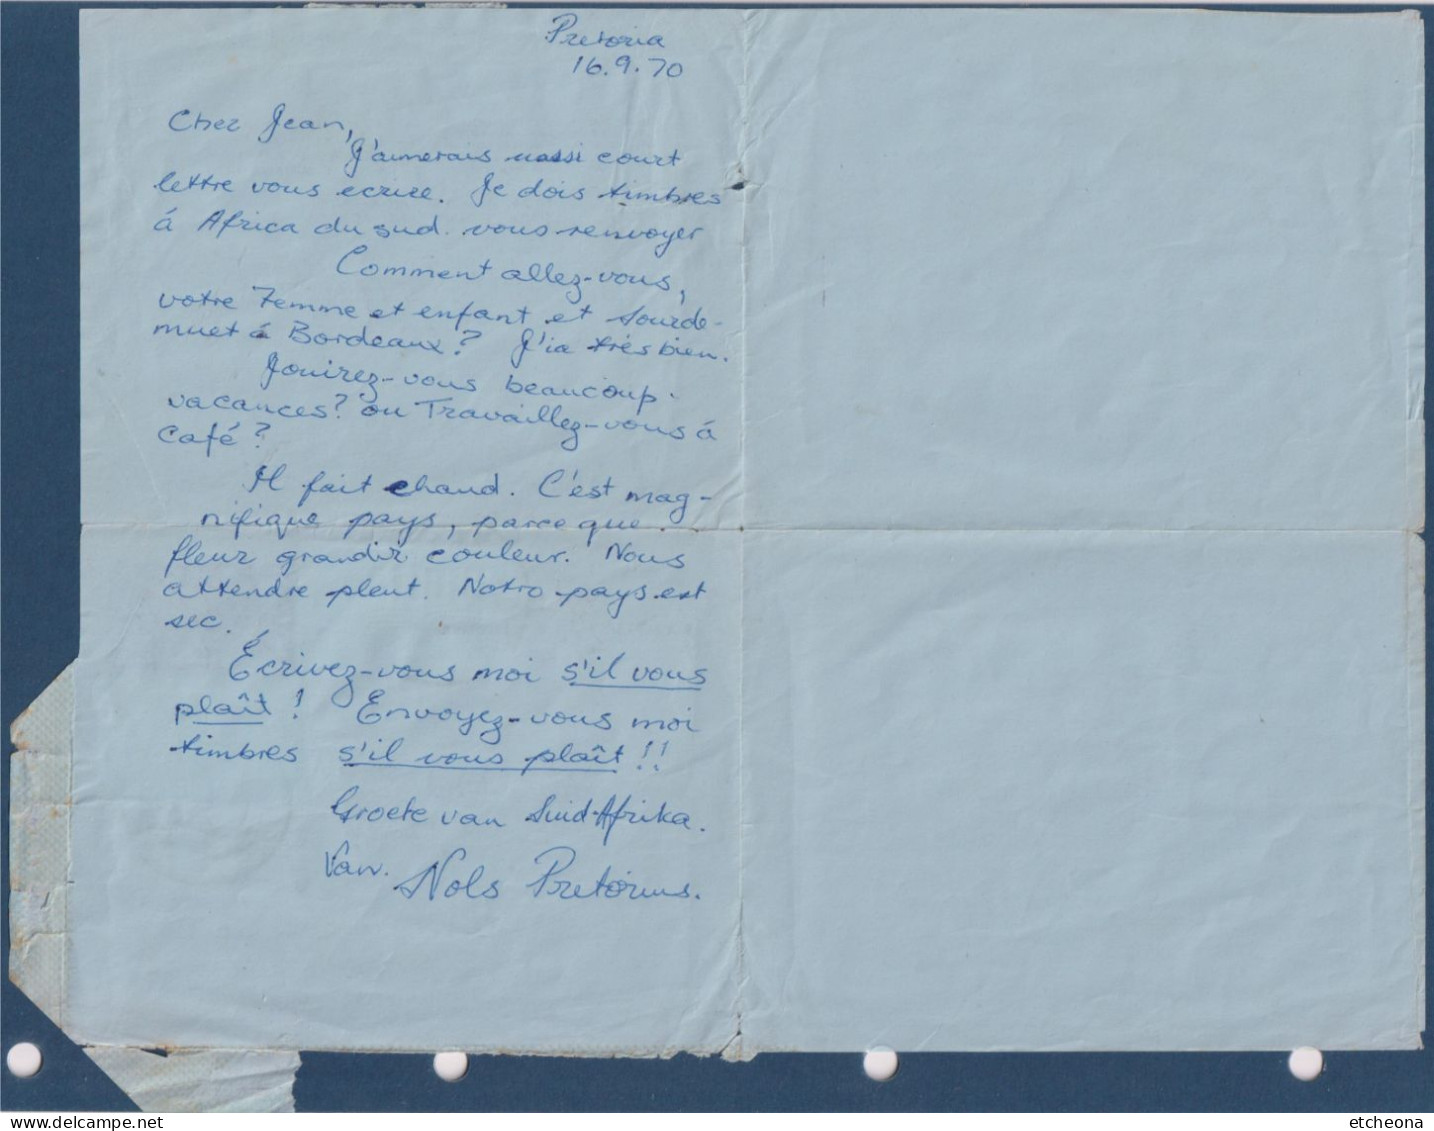 Pretoria
16.9.70
Cher Jean,
J'aimerais aussi court
lettre vous ecrire. Je dois timbres
á Africa du sud. vous renvoyer
Comment allez-vous,
votre Femme et enfant et sourde-
muet á Bordeaux? J'ia trés bien.
Jouirez-vous beaucoup.
vacances? ou Travaillez-vous á
Café?
Il fait chaud. C'est mag-
nifique pays, parce que
fleur grandir couleur. Nous
attendre pleut. Notro pays est
sec.
Écrivez-vous moi s'il vous
plaît! Envoyez-vous moi
timbres s'il vous plaît!!
Groete van Suid-Afrika.
Van.
Nols Pretorius.
etcheona